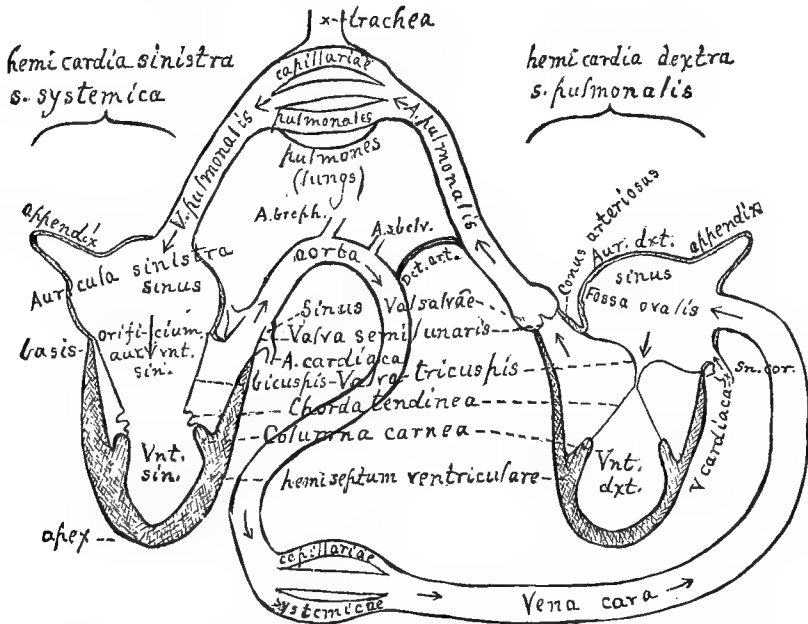 x-trachea
hemicardia sinistra
s. systemica
hemicardia dextra
s. pulmonalis
capillariae
pulmonales
pulmones
(lungs)
V. pulmonalis
A. pulmonalis
A.breph.
A.sbclv.
aorta
Dct. art.
Conus arteriosus
appendix
Auricula sinistra
sinus
Aur. dxt.
appendix
sinus
Fossa ovalis
orificium
aur. vnt.
sin.
basis
Sinus Valsalvae
Valva semilunaris
A. cardiaca
bicuspis-Valva-tricuspis
Chorda tendinea
Columna carnea
hemiseptum ventriculare
Sn. cor.
V cardiaca
Vnt.
sin.
Vnt.
dxt.
apex
capillariae
systemicae
Vena cava